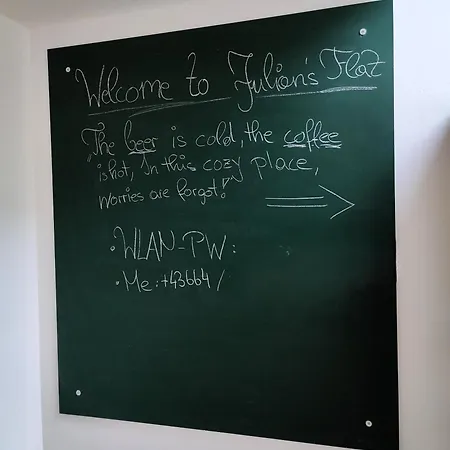 Welcome to Julian's Flat
"The beer is cold, the coffee
is hot, In this cozy place,
worries are forgot!"
· WLAN-PW :
· Me : +43664 /